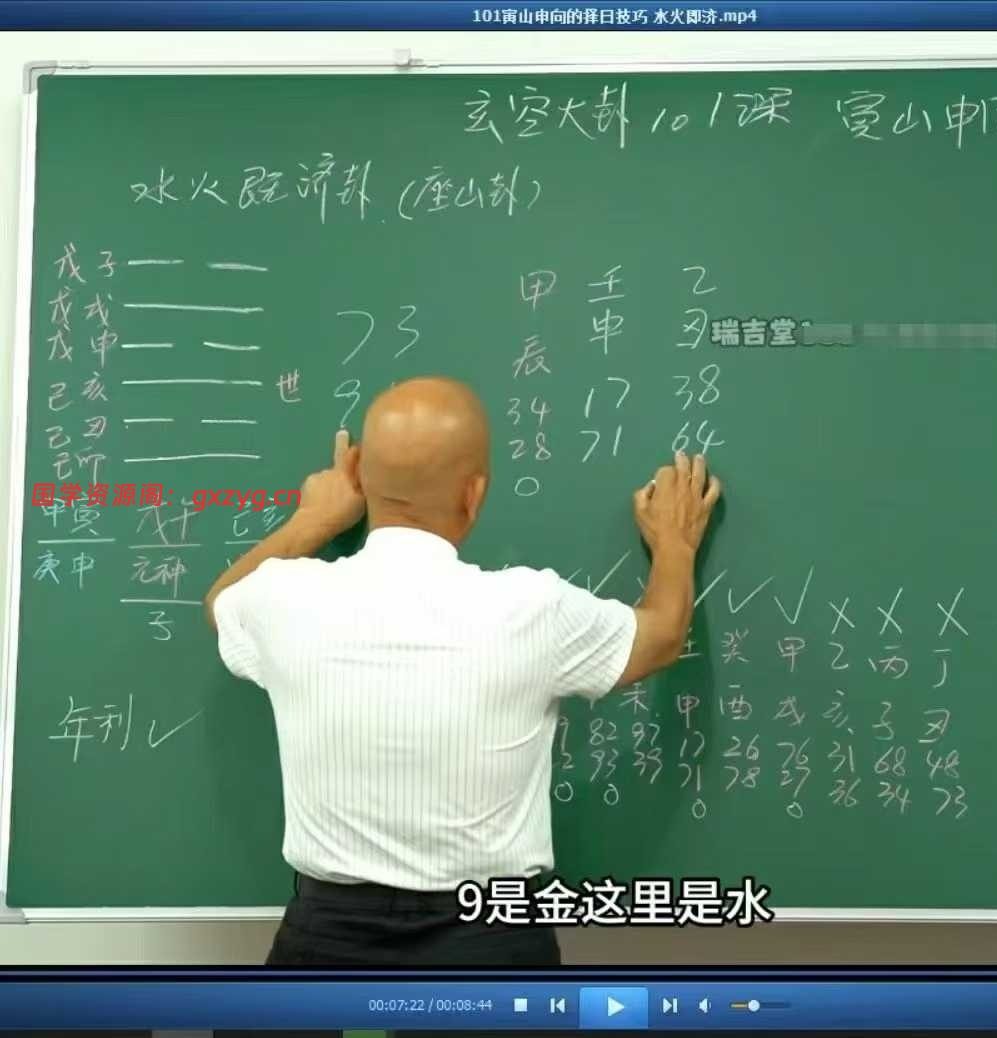 101寅山申向的择日技巧 水火即济.mp4
玄空大卦101课 寅山申
水火既济卦(座山卦)
戊子
戊戌
戊申
己亥 世
己丑
己卯
73
9
甲 壬 乙
辰 申 丑
34 17 38
28 71 64
0
瑞吉堂
国学资源阁：gxzyg.cn
甲寅 戊午 己亥
庚申 元神
子
年利✓
✓ ✓ ✓ X X X
壬 癸 甲 乙 丙 丁
未 申 酉 戌 亥 子 丑
82 97 17 26 76 31 68 48
93 39 71 78 27 36 34 73
0 0 0 0
9是金这里是水
00:07:22 / 00:08:44